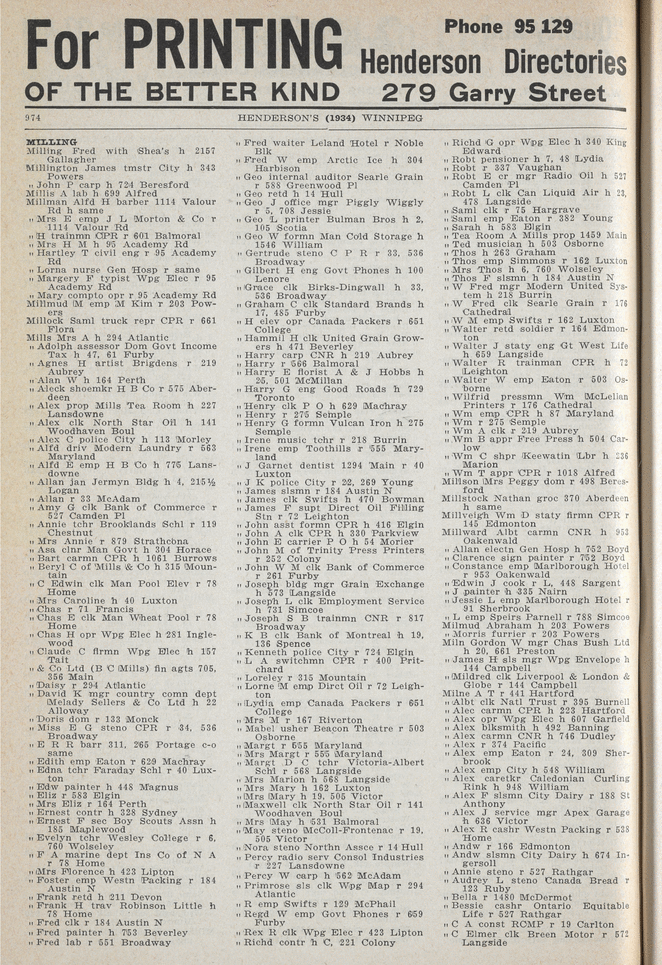 For PRINTING
OF THE BETTER KIND
Phone 95 129
Henderson Directories
279 Garry Street
974
HENDERSON'S (1934) WINNIPEG
MILLING
Milling Fred with Shea's h 2157
Gallagher
Millington James tmstr City h 343
Powers
" John P carp h 724 Beresford
Millis A lab h 699 Alfred
Millman Alfd H barber 1114 Valour
Rd h same
" Mrs E emp J L Morton & Co r
1114 Valour Rd
" H trainmn CPR r 601 Balmoral
" Mrs H M h 95 Academy Rd
" Hartley T civil eng r 95 Academy
Rd
" Lorna nurse Gen Hosp r same
" Margery F typist Wpg Elec r 95
Academy Rd
" Mary compto opr r 95 Academy Rd
Millmud M emp M Kim r 203 Pow-
ers
Millock Saml truck repr CPR r 661
Flora
Mills Mrs A h 294 Atlantic
" Adolph assessor Dom Govt Income
Tax h 47, 61 Furby
" Agnes H artist Brigdens r 219
Aubrey
" Alan W h 164 Perth
" Aleck shoemkr H B Co r 575 Aber-
deen
" Alex prop Mills Tea Room h 227
Lansdowne
" Alex clk North Star Oil h 141
Woodhaven Boul
" Alex C police City h 113 Morley
" Alfd driv Modern Laundry r 563
Maryland
" Alfd E emp H B Co h 776 Lans-
downe
" Allan jan Jermyn Bldg h 4, 215½
Logan
" Allan r 33 McAdam
" Amy G clk Bank of Commerce r
527 Camden Pl
" Annie tchr Brooklands Schl r 119
Chestnut
" Mrs Annie r 879 Strathcona
" Asa clnr Man Govt h 304 Horace
" Bart carmn CPR h 1061 Burrows
" Beryl C of Mills & Co h 315 Moun-
tain
" C Edwin clk Man Pool Elev r 78
Home
" Mrs Caroline h 40 Luxton
" Chas r 71 Francis
" Chas E clk Man Wheat Pool r 78
Home
" Chas H opr Wpg Elec h 281 Ingle-
wood
" Claude C firmn Wpg Elec h 157
Tait
" & Co Ltd (B C Mills) fin agts 705,
356 Main
" Daisy r 294 Atlantic
" David K mgr country comn dept
Melady Sellers & Co Ltd h 22
Alloway
" Doris dom r 133 Monck
" Miss E G steno CPR r 34, 536
Broadway
" E R R barr 311, 265 Portage c-o
same
" Edith emp Eaton r 629 Machray
" Edna tchr Faraday Schl r 40 Lux-
ton
" Edw painter h 448 Magnus
" Eliz r 583 Elgin
" Mrs Eliz r 164 Perth
" Ernest contr h 328 Sydney
" Ernest F sec Boy Scouts Assn h
185 Maplewood
" Evelyn tchr Wesley College r 6,
760 Wolseley
" F A marine dept Ins Co of N A
r 78 Home
" Mrs Florence h 423 Lipton
" Foster emp Westn Packing r 184
Austin N
" Frank retd h 211 Devon
" Frank H trav Robinson Little h
78 Home
" Fred clk r 184 Austin N
" Fred painter h 753 Beverley
" Fred lab r 551 Broadway
" Fred waiter Leland Hotel r Noble
Blk
" Fred W emp Arctic Ice h 304
Harbison
" Geo internal auditor Searle Grain
r 588 Greenwood Pl
" Geo retd h 14 Hull
" Geo J office mgr Piggly Wiggly
r 5, 708 Jessie
" Geo L printer Bulman Bros h 2,
105 Scotia
" Geo W formn Man Cold Storage h
1546 William
" Gertrude steno C P R r 33, 536
Broadway
" Gilbert H eng Govt Phones h 100
Lenore
" Grace clk Birks-Dingwall h 33,
536 Broadway
" Graham C clk Standard Brands h
17, 485 Furby
" H elev opr Canada Packers r 651
College
" Hammil H clk United Grain Grow-
ers h 471 Beverley
" Harry carp CNR h 219 Aubrey
" Harry r 566 Balmoral
" Harry E florist A & J Hobbs h
25, 501 McMillan
" Harry G eng Good Roads h 729
Toronto
" Henry clk P O h 629 Machray
" Henry r 275 Semple
" Henry G formn Vulcan Iron h 275
Semple
" Irene music tchr r 218 Burrin
" Irene emp Toothills r 555 Mary-
land
" J Garnet dentist 1294 Main r 40
Luxton
" J K police City r 22, 269 Young
" James slsmn r 184 Austin N
" James clk Swifts h 470 Bowman
" James F supt Direct Oil Filling
Stn r 72 Leighton
" John asst formn CPR h 416 Elgin
" John A clk CPR h 330 Parkview
" John E carrier P O h 54 Morier
" John M of Trinity Press Printers
r 252 Colony
" John W M clk Bank of Commerce
r 261 Furby
" Joseph bldg mgr Grain Exchange
h 573 Langside
" Joseph L clk Employment Service
h 731 Simcoe
" Joseph S B trainmn CNR r 817
Broadway
" K B clk Bank of Montreal h 19,
136 Spence
" Kenneth police City r 724 Elgin
" L A switchmn CPR r 400 Prit-
chard
" Loreley r 315 Mountain
" Lorne M emp Dirct Oil r 72 Leigh-
ton
" Lydia emp Canada Packers r 651
College
" Mrs M r 167 Riverton
" Mabel usher Beacon Theatre r 503
Osborne
" Margt r 555 Maryland
" Mrs Margt r 555 Maryland
" Margt D C tchr Victoria-Albert
Schl r 568 Langside
" Mrs Marion h 568 Langside
" Mrs Mary h 162 Luxton
" Mrs Mary h 19, 505 Victor
" Maxwell clk North Star Oil r 141
Woodhaven Boul
" Mrs May h 531 Balmoral
" May steno McColl-Frontenac r 19,
505 Victor
" Nora steno Northn Assce r 14 Hull
" Percy radio serv Consol Industries
r 227 Lansdowne
" Percy W carp h 562 McAdam
" Primrose sls clk Wpg Map r 294
Atlantic
" R emp Swifts r 129 McPhail
" Regd W emp Govt Phones r 659
Furby
" Rex R clk Wpg Elec r 423 Lipton
" Richd contr h C, 221 Colony
" Richd G opr Wpg Elec h 340 King
Edward
" Robt pensioner h 7, 48 Lydia
" Robt r 337 Vaughan
" Robt E cr mgr Radio Oil h 527
Camden Pl
" Robt L clk Can Liquid Air h 23,
478 Langside
" Saml clk r 75 Hargrave
" Saml emp Eaton r 382 Young
" Sarah h 583 Elgin
" Tea Room A Mills prop 1459 Main
" Ted musician h 503 Osborne
" Thos h 263 Graham
" Thos emp Simmons r 162 Luxton
" Mrs Thos h 6, 760 Wolseley
" Thos F slsmn h 184 Austin N
" W Fred mgr Modern United Sys-
tem h 218 Burrin
" W Fred clk Searle Grain r 176
Cathedral
" W M emp Swifts r 162 Luxton
" Walter retd soldier r 164 Edmon-
ton
" Walter J staty eng Gt West Life
h 659 Langside
" Walter R trainmn CPR h 72
Leighton
" Walter W emp Eaton r 503 Os-
borne
" Wilfrid pressmn Wm McLelian
Printers r 176 Cathedral
" Wm emp CPR h 87 Maryland
" Wm r 275 Semple
" Wm A clk r 219 Aubrey
" Wm B appr Free Press h 504 Car-
low
" Wm C shpr Keewatin Lbr h 236
Marion
" Wm T appr CPR r 1018 Alfred
Millson Mrs Peggy dom r 498 Beres-
ford
Millstock Nathan groc 370 Aberdeen
h same
Millveigh Wm D staty firmn CPR r
145 Edmonton
Millward Albt carmn CNR h 953
Oakenwald
" Allan electn Gen Hosp h 752 Boyd
" Clarence sign painter r 752 Boyd
" Constance emp Marlborough Hotel
r 953 Oakenwald
" Edwin J cook r L, 448 Sargent
" J painter h 335 Nairn
" Jessie L emp Marlborough Hotel r
91 Sherbrook
" L emp Speirs Parnell r 788 Simcoe
Milmud Abraham h 203 Powers
" Morris furrier r 203 Powers
Miln Gordon W mgr Chas Bush Ltd
h 20, 661 Preston
" James H sls mgr Wpg Envelope h
144 Campbell
" Mildred clk Liverpool & London &
Globe r 144 Campbell
Milne A T r 441 Hartford
" Albt clk Natl Trust r 395 Burnell
" Alec carmn CPR h 223 Hartford
" Alex opr Wpg Elec h 607 Garfield
" Alex blksmith h 492 Banning
" Alex carmn CNR h 746 Dudley
" Alex r 374 Pacific
" Alex emp Eaton r 24, 309 Sher-
brook
" Alex emp City h 548 William
" Alex caretkr Caledonian Curling
Rink h 948 William
" Alex F slsmn City Dairy r 188 St
Anthony
" Alex J service mgr Apex Garage
h 636 Victor
" Alex R cashr Westn Packing r 538
Home
" Andw r 166 Edmonton
" Andw slsmn City Dairy h 674 In-
gersoll
" Annie steno r 527 Rathgar
" Audrey L steno Canada Bread r
123 Ruby
" Bella r 1480 McDermot
" Bessie cashr Ontario Equitable
Life r 527 Rathgar
" C A const RCMP r 19 Carlton
" C Elmer clk Breen Motor r 572
Langside